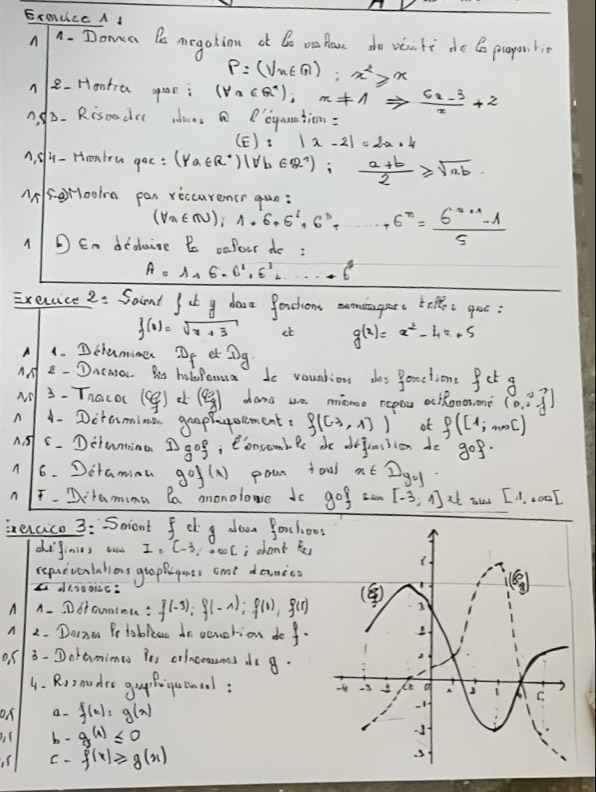 Exercice 1 :
1 1- Donner la negation et la valeur de vérité de la proposition
P : (∀x∈ℝ) ; x² ≥ x
1 2- Montrer que : (∀x∈ℝ*) ; x ≠ 1 ⇒ +2
1,5 3- Résoudre dans ℝ l'équation :
(E) : |x-2| = 2x+4
1,5 4- Montrer que : (∀a∈ℝ⁺)(∀b∈ℝ⁺) ; (a+b)/2 ≥ √ab
1,5 5-a) Montrer par réccurence que :
(∀n∈ℕ) ; 1+6+6²+6³+.....+6ⁿ = (6ⁿ⁺¹-1)/5
1 b) En déduire la valeur de :
A = 1+6+6²+6³+.....+6
Exercice 2 : Soient f et g deux fonctions numériques telles que :
f(x) = √x+3 et g(x) = x²-4x+5
1 1- Déterminer Df et Dg.
1,5 2- Dresser les tableaux de variation des fonctions f et g
1,5 3- Tracer (Cf) et (Cg) dans un même repère orthonormé
1 4- Déterminer graphiquement : f([-3,1]) et f([1;+∞[)
1,5 5- Déterminer Dgof ; l'ensemble de définition de gof.
1 6- Détermine gof(x) pour tout x∈Dgof
1 7- Détermine la monotonie de gof sur [-3,1] et sur [1,+∞[
Exercice 3 : Soient f et g deux fonctions
définies sur I = [-3,+∞[ ; dont les
représentations graphiques sont données
ci dessous :
1 1- Détermine : f(-3) ; f(-1) ; f(1) ;
1 2- Dresser le tableau de variation de f.
0,5 3- Déterminer les extremums de g.
4- Résoudre graphiquement :
0,5 a- f(x) = g(x)
b- g(x) ≤ 0
c- f(x) ≥ g(x)
(Cf) (Cg)
-4 -3 -2 0 1
-1
-2
-3